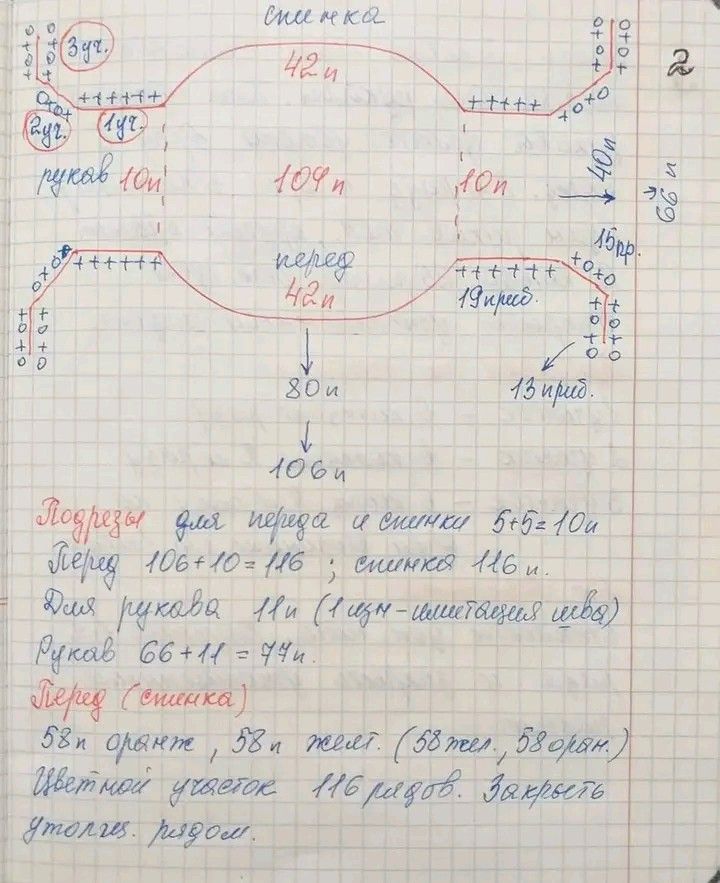 спинка
2
3уч.
42п
2уч.
1уч.
+ + + + + +
+ + + + +
рукав
10п
104п
10п
40п
66п
перед
42п
+ + + + + +
+ + + + + +
15пр.
19приб.
80п
13приб.
106п
Подрезы для переда и спинки 5+5=10п
Перед 106+10=116 ; спинка 116п.
Для рукава 11п (1изн-имитация шва)
Рукав 66+11=77п.
Перед (спинка)
58п оранж, 58п желт. (58жел., 58оран.)
Цветной участок 116рядов. Закрыть
утолщ. рядом.